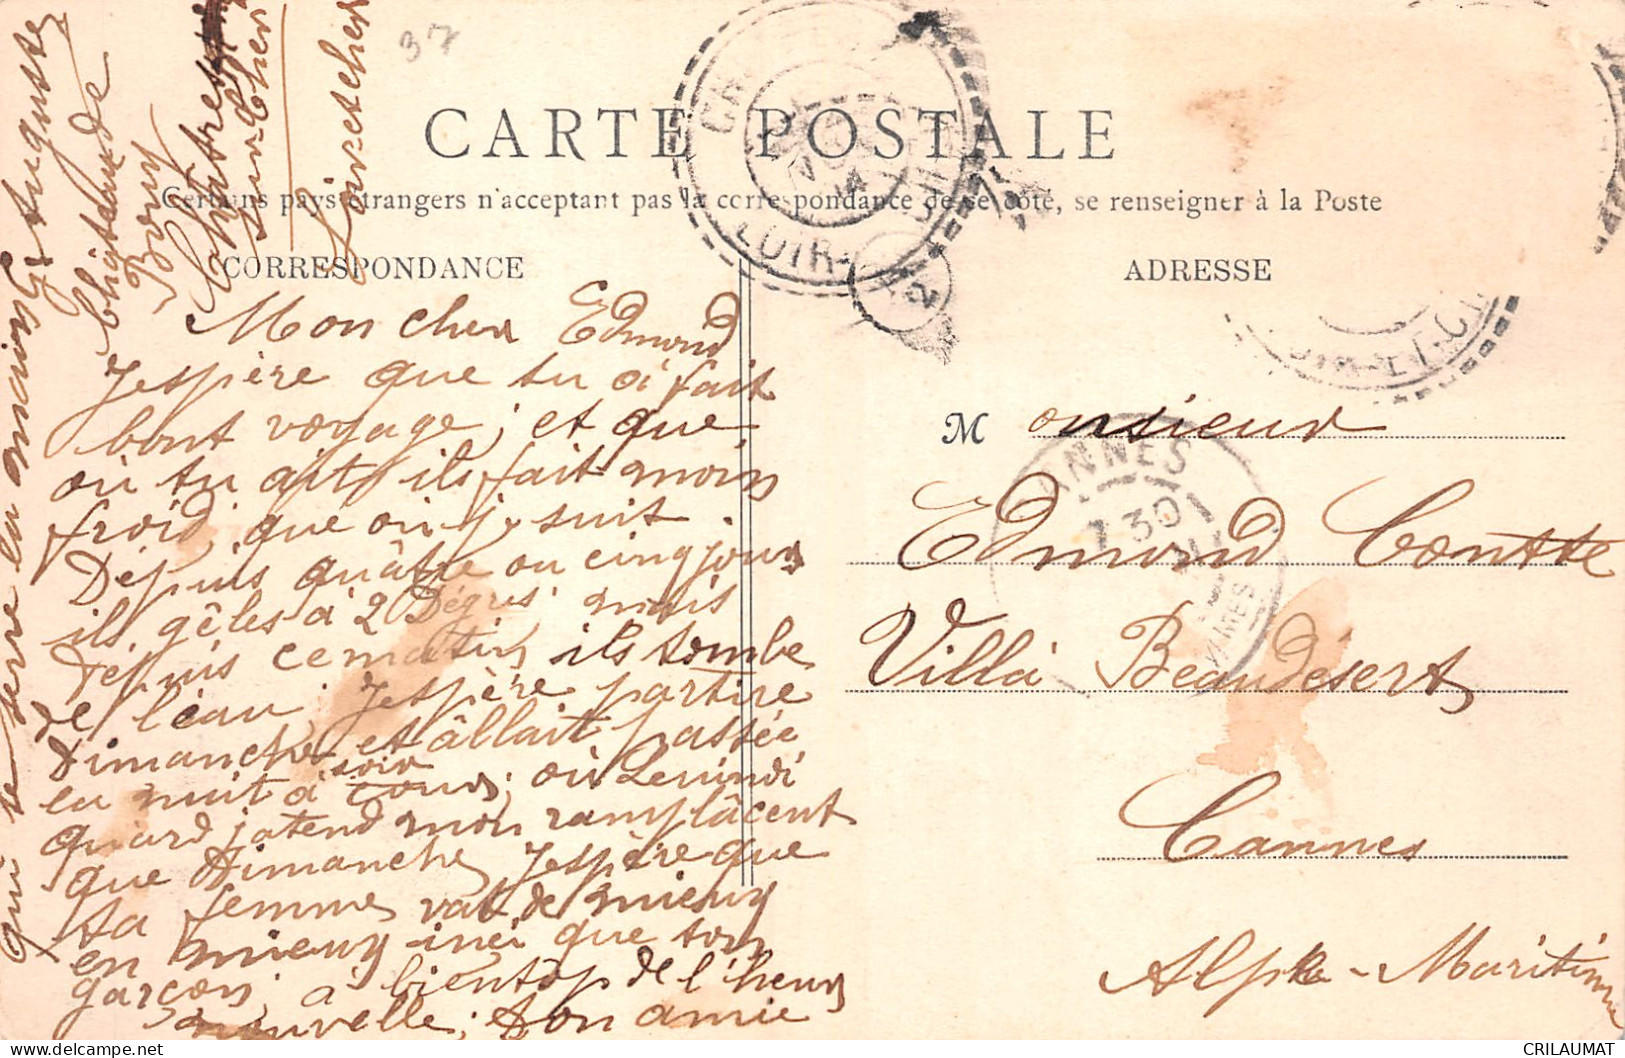 37
CARTE POSTALE
Certains pays étrangers n'acceptent pas la correspondance de ce côté, se renseigner à la Poste
CORRESPONDANCE
ADRESSE
Mon cher Edmond
J'espère que tu ai fait
bont voyage, et que
où tu ait ils fait moin
froid, que où je suit.
Depuis quâtre ou cinq jours
ils gêles à 2 Dégres mais
depuis ce matin ils tombe
de l'eau, J'espère partire
Dimanche et âllait passée
la nuit à tours, où Lenindi
soir
quard j'atend mon ramplâcent
que Dimanche, J'espère que
ta femme vat de mieux
en mieux inci que ton
garçon, à bientôp de l'heurs
nouvelle, ton amie
qui te serre la main
Auguste
Chitenay
sur Cher
Loiretcher
Monsieur
Edmond Contte
Villa Beaudésert
Cannes
Alpe-Maritime
LOIR-
LOIR-ET-CH
CANNES
7 30
CRILAUMAT